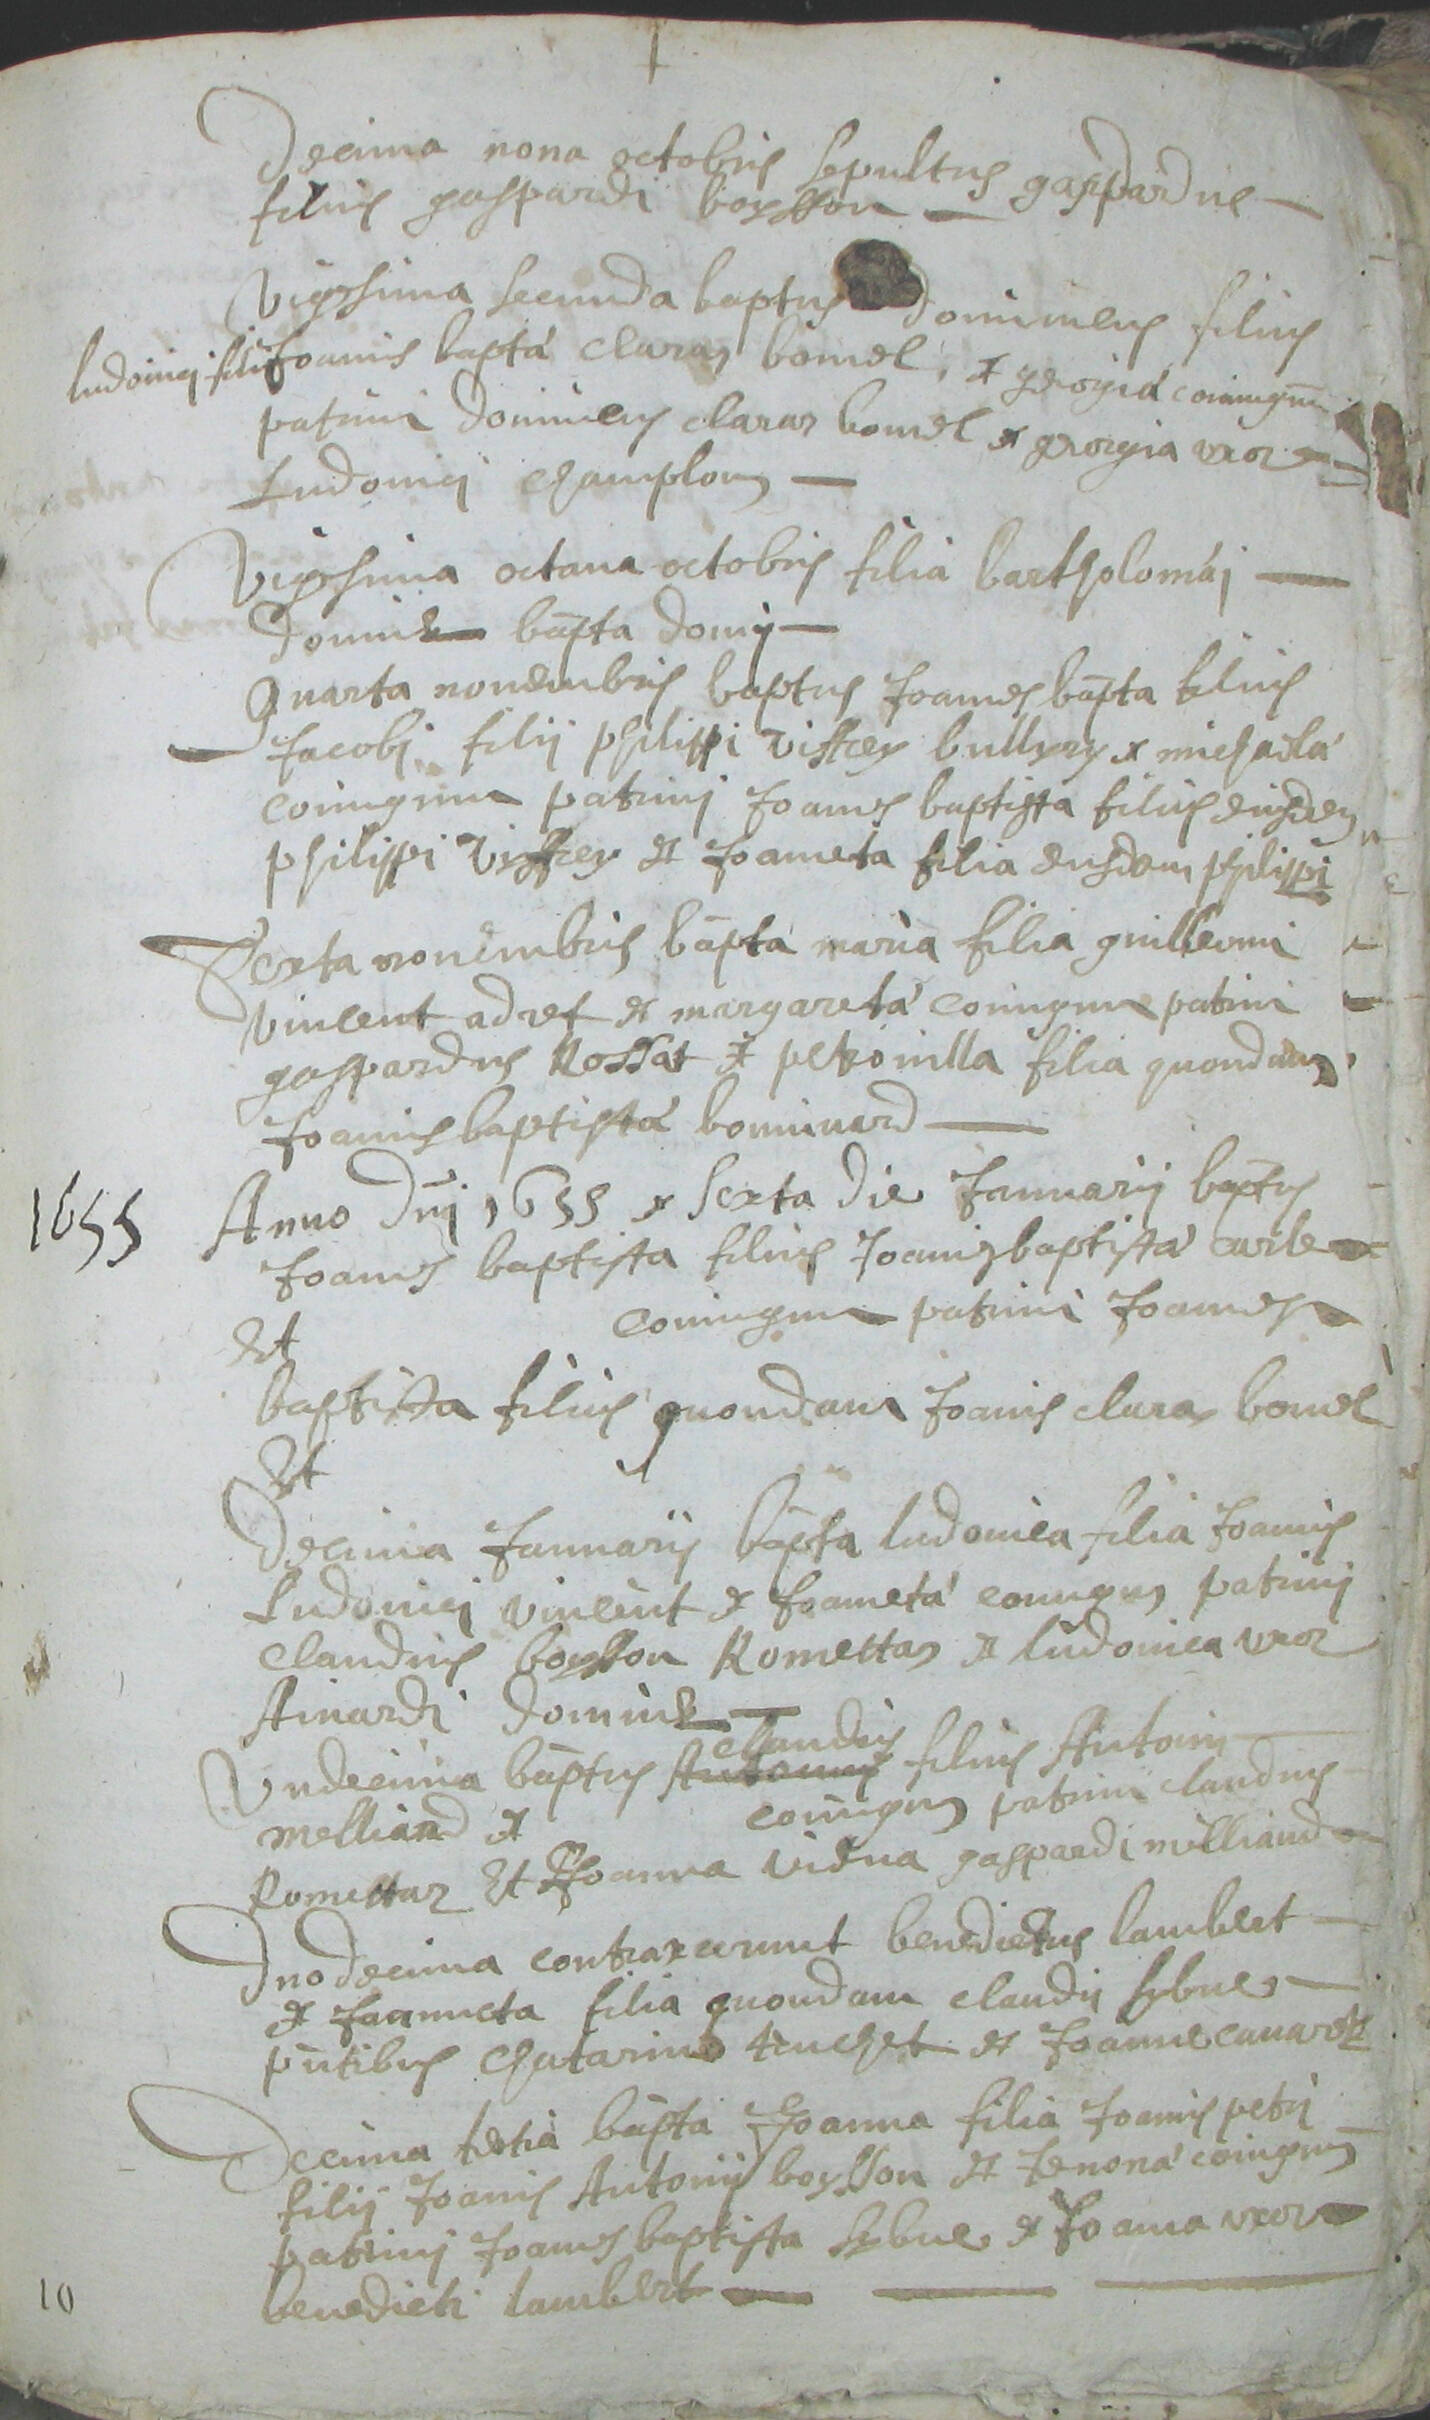 Decima nona octobris sepultus gaspardus
filius gaspardi boysson
Vigessima secunda baptus dominicus filius
ludovici filii Joanis bapta claraz bomel, et georgia coniugum
patrini dominicus claraz bomel et georgia uxor
Ludovici champlong
Vigessima octaua octobris filia bartholomæi
dominh bapta domij
Quarta nouembris baptus Joanes bapta filius
Jacobi filii philippi viffrey bulliery et michaela
coniugum patrini Joanes baptista filius eiusdem
philippi viffrey et Joaneta filia eiusdem philippi
Sexta nouembris bapta maria filia guillermi
vincent adret et margareta coniugum patrini
gaspardus Rossat et petronilla filia quondam
Joanis baptistæ bonninard
1655 Anno Dnj 1655 et sexta die Januarij baptus
Joanes baptista filius Joanis baptistæ carle
Et coniugum patrini Joanes
baptista filius quondam Joanis claraz bomel
Et
Decima Januarij bapta ludouica filia Joanis
Ludouici vincent et Joanetæ coniugum patrinj
claudius boysson Romettaz et ludouica uxor
Ainardi dominh
Undecima baptus Antonius claudius filius Antonij
melliand et coniugum patrini claudius
Romettaz Et Joanna vidua gaspardi milliand
Duodecima contraxerunt benedictus lambert
et Joanneta filia quondam claudij sybue
pntibus chatarino truchet et Joanne
Decima tertia bapta Joanna filia Joanis petri
filij Joanis Antonij boysson et Jenonæ coniugum
patrinj Joanes baptista sybue et Joana uxor
benedicti lambert
10